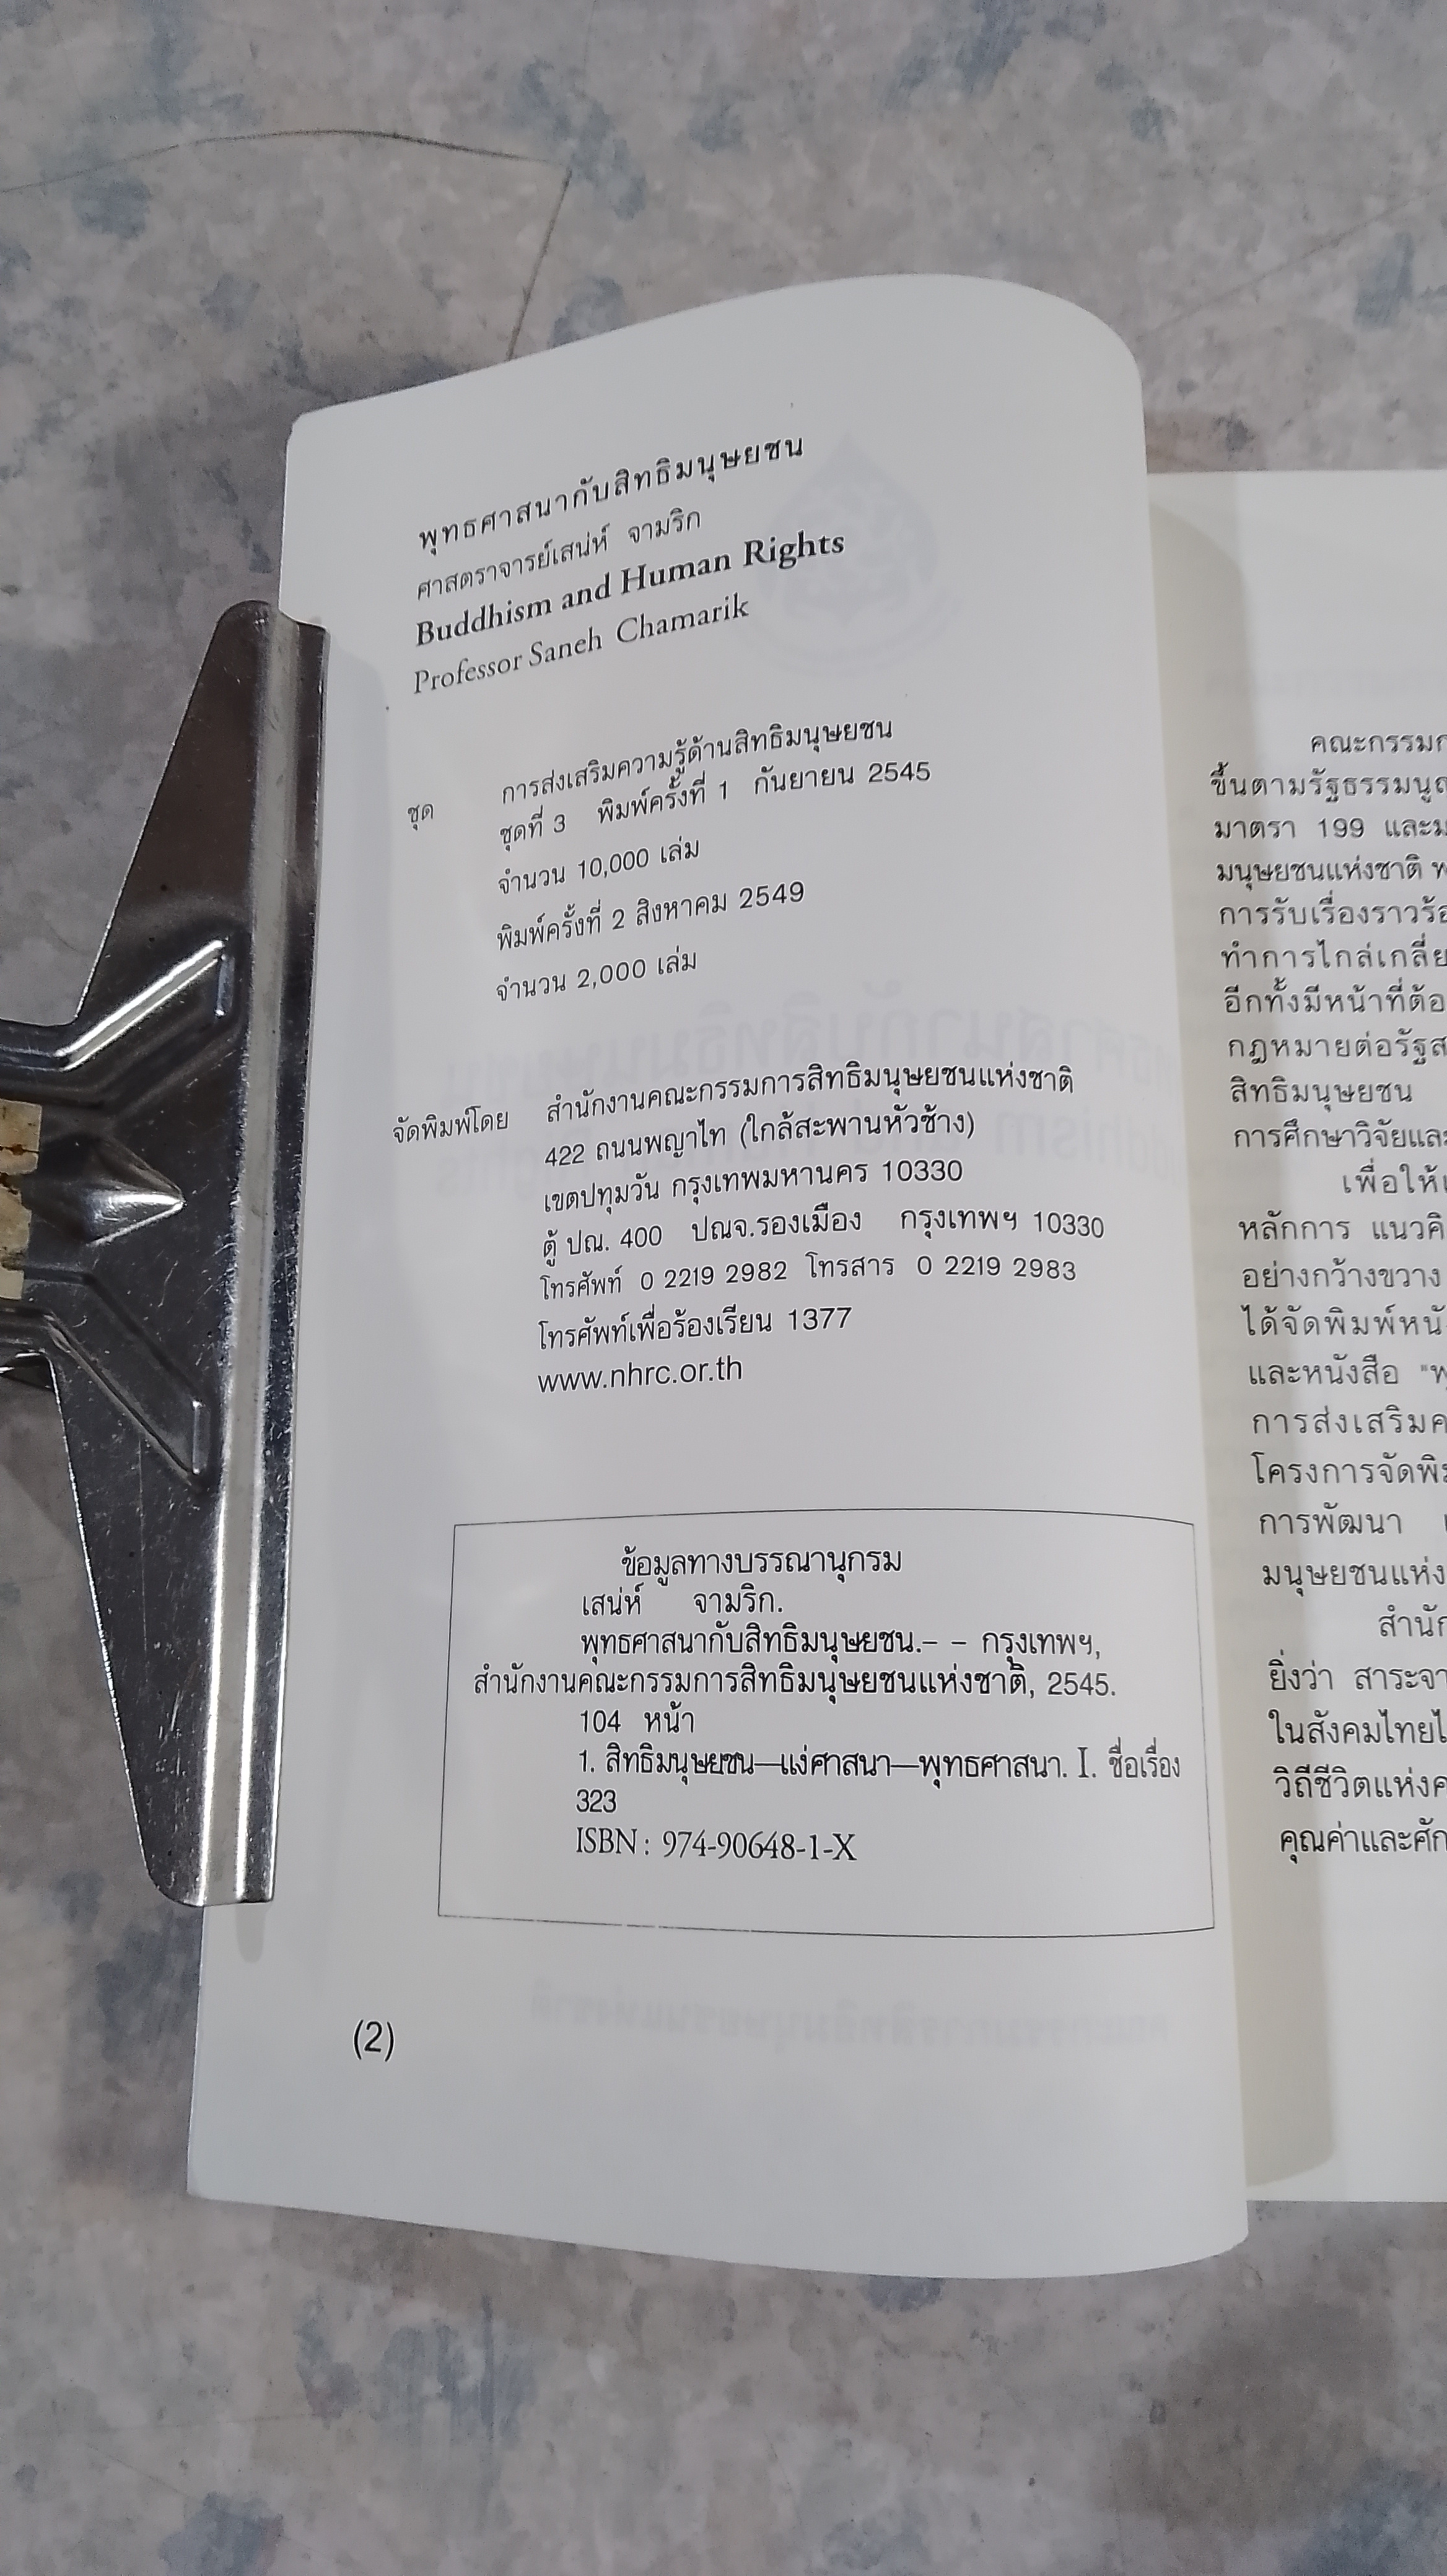 พุทธศาสนากับสิทธิมนุษยชน
ศาสตราจารย์เสน่ห์ จามริก
Buddhism and Human Rights
Professor Saneh Chamarik
ชุด การส่งเสริมความรู้ด้านสิทธิมนุษยชน
ชุดที่ 3 พิมพ์ครั้งที่ 1 กันยายน 2545
จำนวน 10,000 เล่ม
พิมพ์ครั้งที่ 2 สิงหาคม 2549
จำนวน 2,000 เล่ม
จัดพิมพ์โดย สำนักงานคณะกรรมการสิทธิมนุษยชนแห่งชาติ
422 ถนนพญาไท (ใกล้สะพานหัวช้าง)
เขตปทุมวัน กรุงเทพมหานคร 10330
ตู้ ปณ. 400 ปณจ.รองเมือง กรุงเทพฯ 10330
โทรศัพท์ 0 2219 2982 โทรสาร 0 2219 2983
โทรศัพท์เพื่อร้องเรียน 1377
www.nhrc.or.th
ข้อมูลทางบรรณานุกรม
เสน่ห์ จามริก.
พุทธศาสนากับสิทธิมนุษยชน.– – กรุงเทพฯ,
สำนักงานคณะกรรมการสิทธิมนุษยชนแห่งชาติ, 2545.
104 หน้า
1. สิทธิมนุษยชน—แง่ศาสนา—พุทธศาสนา. I. ชื่อเรื่อง
323
ISBN : 974-90648-1-X
(2)
คณะกรรมก
ขึ้นตามรัฐธรรมนูญ
มาตรา 199 และม
มนุษยชนแห่งชาติ พ
การรับเรื่องราวร้อ
ทำการไกล่เกลี่ย
อีกทั้งมีหน้าที่ต้อ
กฎหมายต่อรัฐส
สิทธิมนุษยชน
การศึกษาวิจัยและ
เพื่อให้เ
หลักการ แนวคิ
อย่างกว้างขวาง
ได้จัดพิมพ์หนั
และหนังสือ “พ
การส่งเสริมค
โครงการจัดพิม
การพัฒนา
มนุษยชนแห่ง
สำนัก
ยิ่งว่า สาระจา
ในสังคมไทยไ
วิถีชีวิตแห่งค
คุณค่าและศัก